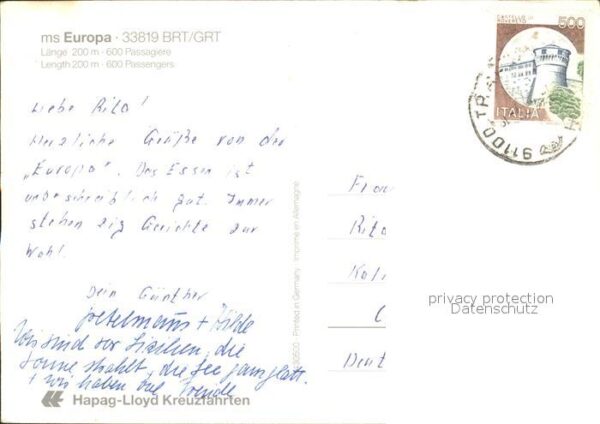 ms Europa · 33819 BRT/GRT
Länge 200 m · 600 Passagiere
Length 200 m · 600 Passengers
CASTELLO DI ROVERETO
500
ITALIA
91100 TRA
Liebe Rita!
Herzliche Grüße von der
„Europa". Das Essen ist
unbeschreiblich gut. Immer
stehen zig Gerichte zur
Wahl!
Dein Günther
+ Hilde
Wir sind vor Sizilien, die
Sonne strahlt, die See ganz glatt.
+ wir haben viel Freude
Frau
Rita
Deut
privacy protection
Datenschutz
Printed in Germany · Imprimé en Allemagne
Hapag-Lloyd Kreuzfahrten